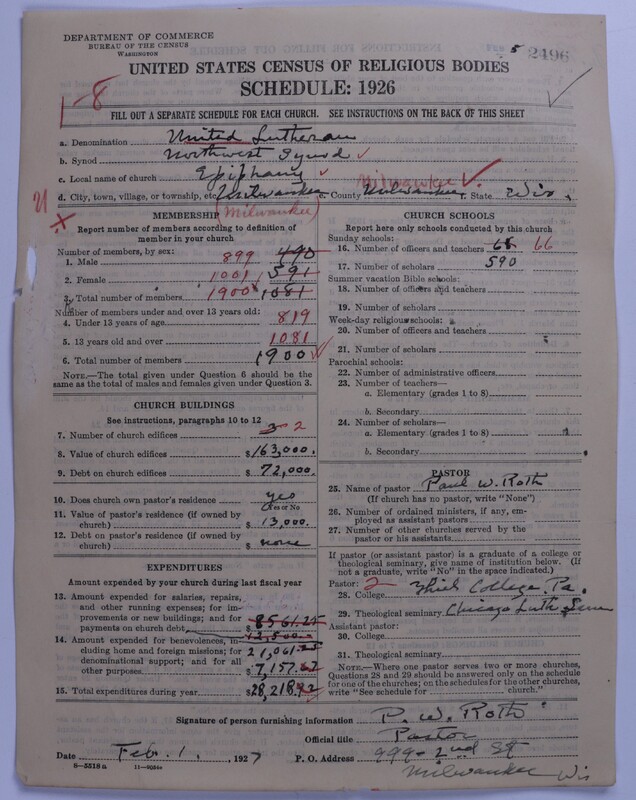 DEPARTMENT OF COMMERCE
BUREAU OF THE CENSUS
WASHINGTON
5 2496
UNITED STATES CENSUS OF RELIGIOUS BODIES
SCHEDULE: 1926
1-8
FILL OUT A SEPARATE SCHEDULE FOR EACH CHURCH. SEE INSTRUCTIONS ON THE BACK OF THIS SHEET
a. Denomination United Lutheran
b. Synod Northwest Synod
c. Local name of church Epiphany
d. City, town, village, or township, etc. Milwaukee e. County Milwaukee Milwaukee f. State Wis.
U
X
MEMBERSHIP (Milwaukee)
Report number of members according to definition of
member in your church
Number of members, by sex:
1. Male 899 490
2. Female 1001 591
3. Total number of members 1900 1081
Number of members under and over 13 years old:
4. Under 13 years of age 819
5. 13 years old and over 1081
6. Total number of members 1900
NOTE.—The total given under Question 6 should be the
same as the total of males and females given under Question 3.
CHURCH BUILDINGS
See instructions, paragraphs 10 to 12
7. Number of church edifices 3 2
8. Value of church edifices $163,000.
9. Debt on church edifices $72,000.
10. Does church own pastor's residence yes
(Yes or No)
11. Value of pastor's residence (if owned by
church) $13,000.
12. Debt on pastor's residence (if owned by
church) $none
EXPENDITURES
Amount expended by your church during last fiscal year
13. Amount expended for salaries, repairs,
and other running expenses; for im-
provements or new buildings; and for
payments on church debt $8561.25
12,500
14. Amount expended for benevolences, in-
cluding home and foreign missions; for
21,061.25
denominational support; and for all
other purposes $7,157.67
15. Total expenditures during year $28,218.92
CHURCH SCHOOLS
Report here only schools conducted by this church
Sunday schools:
16. Number of officers and teachers 68 66
17. Number of scholars 590
Summer vacation Bible schools:
18. Number of officers and teachers
19. Number of scholars
Week-day religious schools:
20. Number of officers and teachers
21. Number of scholars
Parochial schools:
22. Number of administrative officers
23. Number of teachers—
a. Elementary (grades 1 to 8)
b. Secondary
24. Number of scholars—
a. Elementary (grades 1 to 8)
b. Secondary
PASTOR
25. Name of pastor Paul W. Roth
(If church has no pastor, write "None")
26. Number of ordained ministers, if any, em-
ployed as assistant pastors
27. Number of other churches served by the
pastor or his assistants
If pastor (or assistant pastor) is a graduate of a college or
theological seminary, give name of institution below. (If
not a graduate, write "No" in the space indicated.)
Pastor: 2
28. College Thiel College, Pa.
29. Theological seminary Chicago Luth Sem
Assistant pastor:
30. College
31. Theological seminary
NOTE.—Where one pastor serves two or more churches,
Questions 28 and 29 should be answered only on the schedule
for one of the churches; on the schedules for the other churches,
write "See schedule for church."
Signature of person furnishing information P. W. Roth
Official title Pastor
Date Feb. 1, 1927 P. O. Address 999- 2nd St
Milwaukee Wis
8-5518a 11-9034